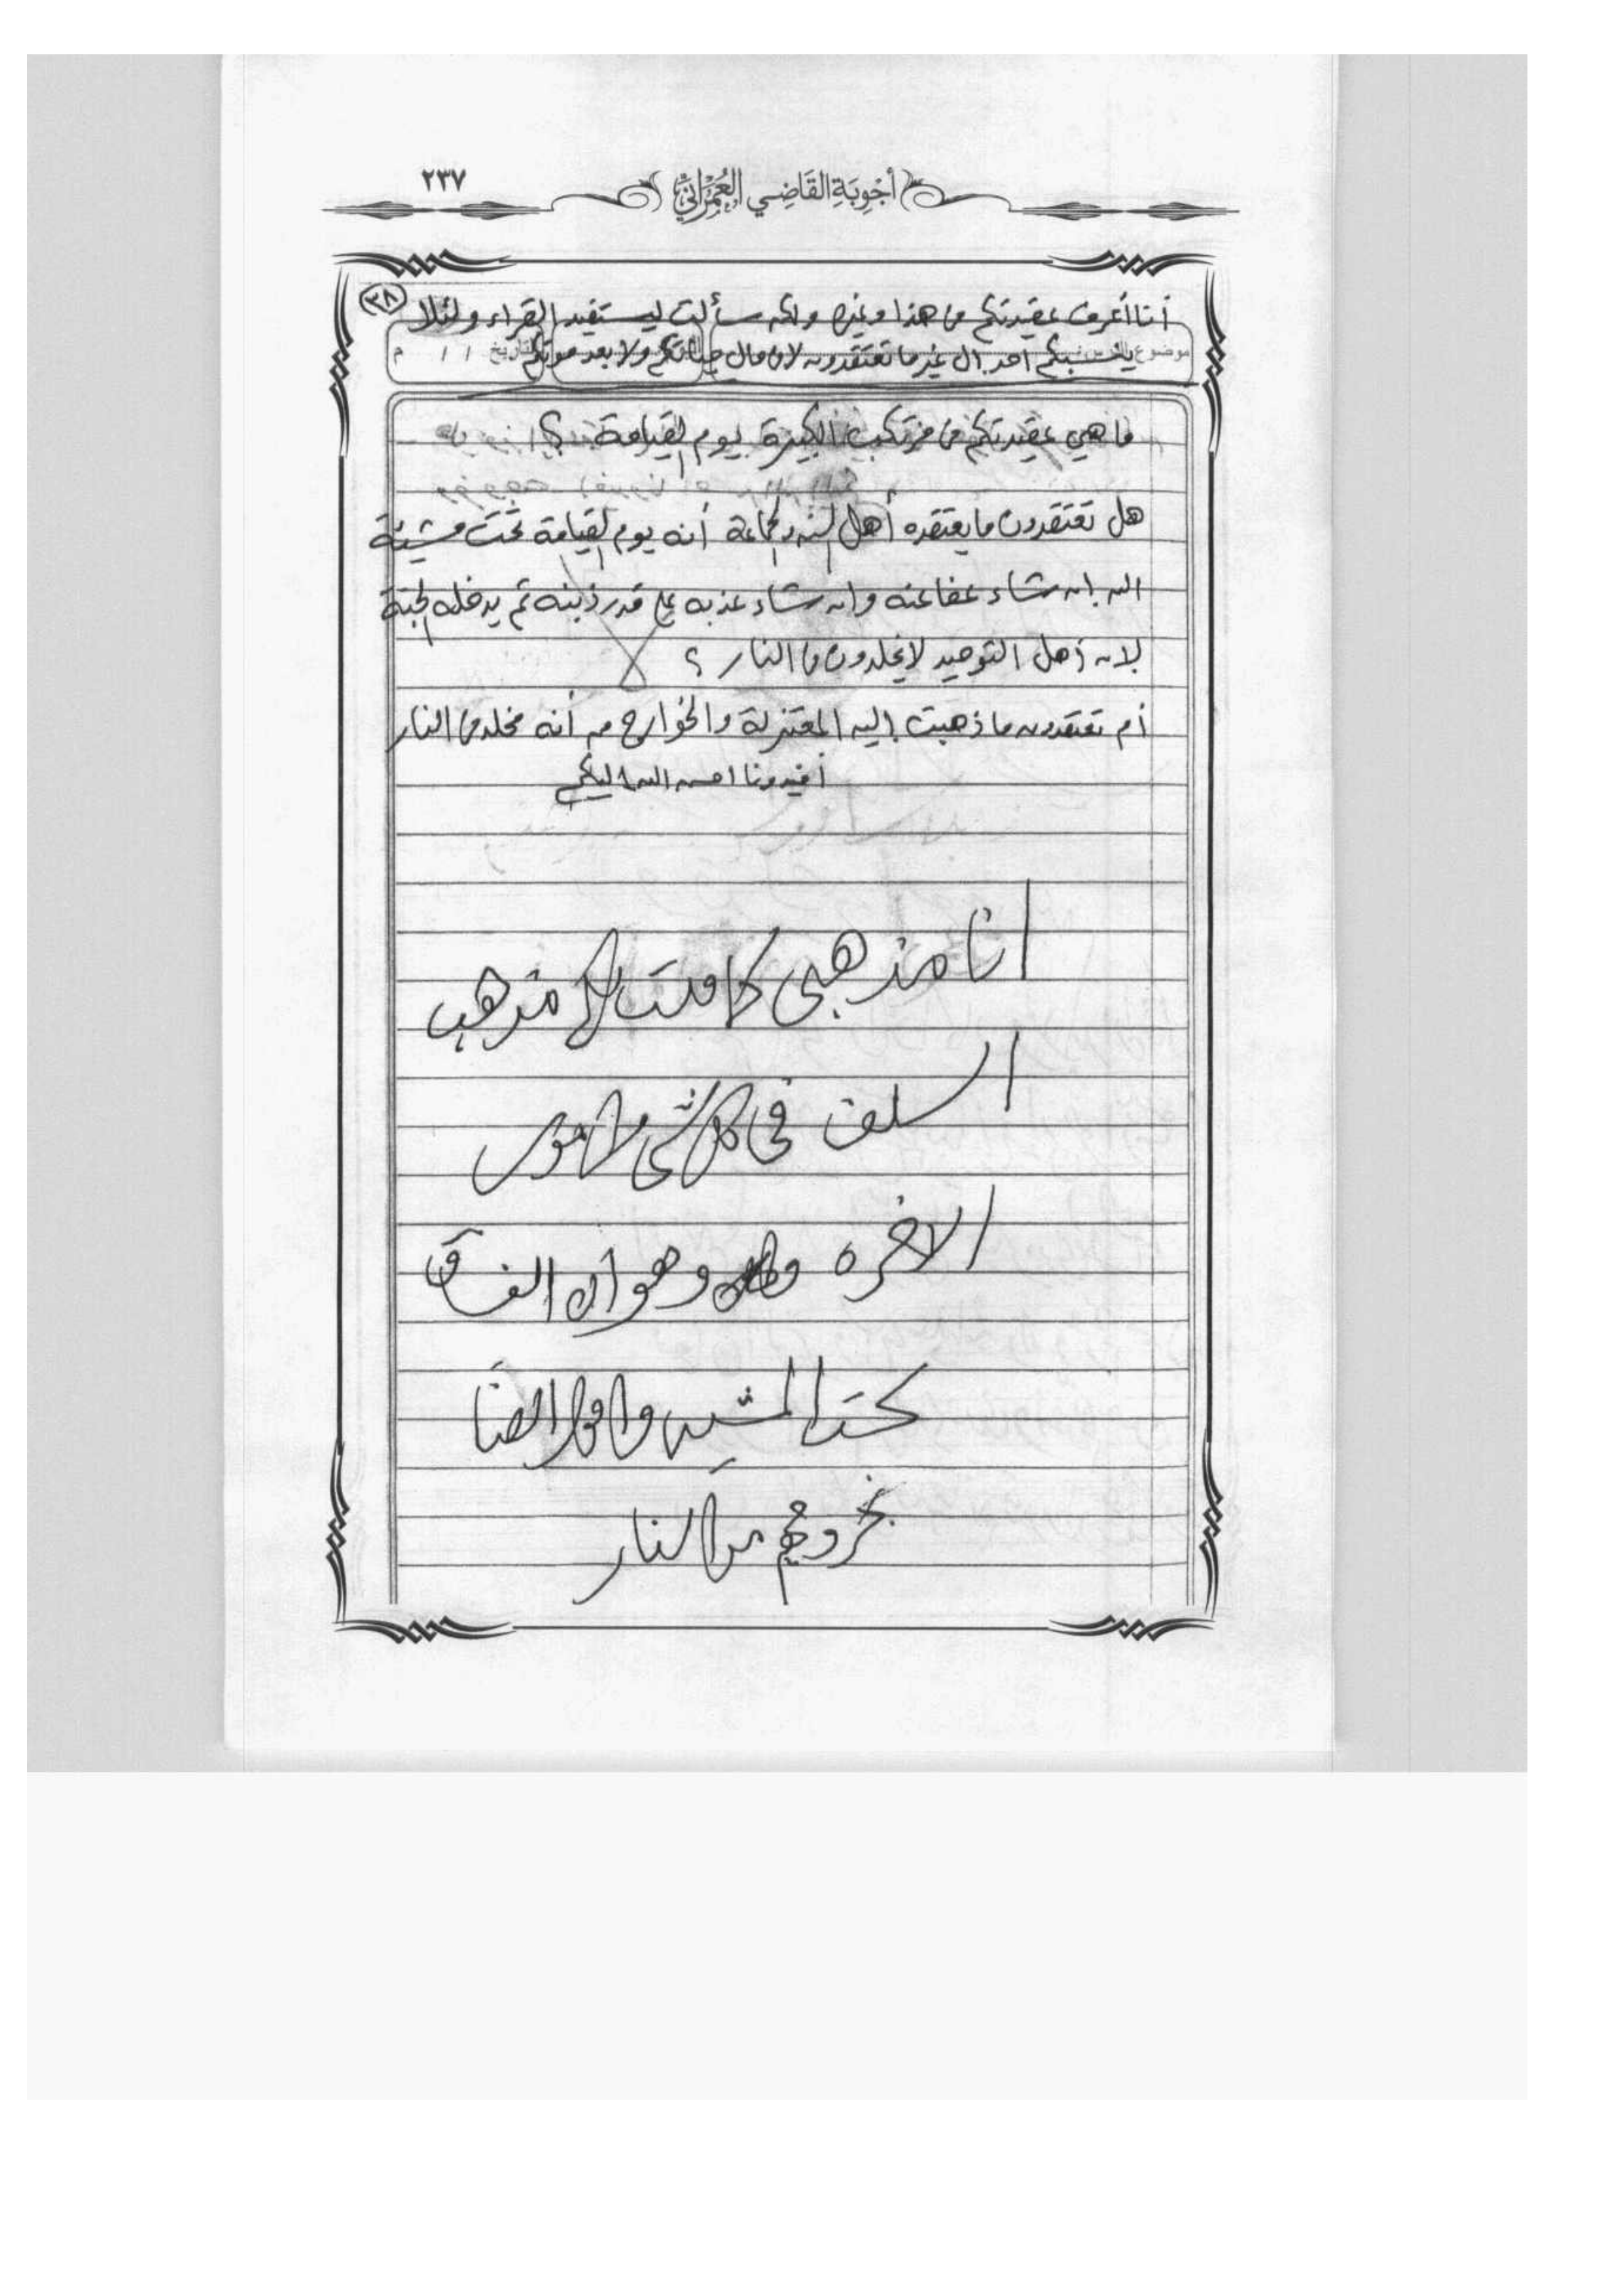 أَجْوِبَةِ القَاضِي العِمْرَانِيّ ٢٣٧
٣٨
أنا أعرف عقيدتكم في هذا وغيره ولكن سألت ليستفيد القراء ولئلا
ينسبكم احد الى غير ما تعتقدون لا في حال حياتكم ولا بعد موتكم
موضوع الدرس التاريخ / / م
ما هي عقيدتكم في مرتكب الكبيرة يوم القيامة ؟
هل تعتقدون ما يعتقده أهل السنه والجماعة أنه يوم القيامة تحت مشيئة
الله إن شاء عفا عنه وان شاء عذبه على قدر ذنبه ثم يدخله الجنة
لان أهل التوحيد لا يخلدون في النار ؟
أم تعتقدون ما ذهبت إليه المعتزلة والخوارج من أنه مخلد في النار
أفيدونا احسن الله اليكم
انا مذهبي كما قلت لكم مذهب
السلف في كل شي
الاخره وهو أن الفساق
تحت المشيه واقول ايضا
بخروجهم من النار